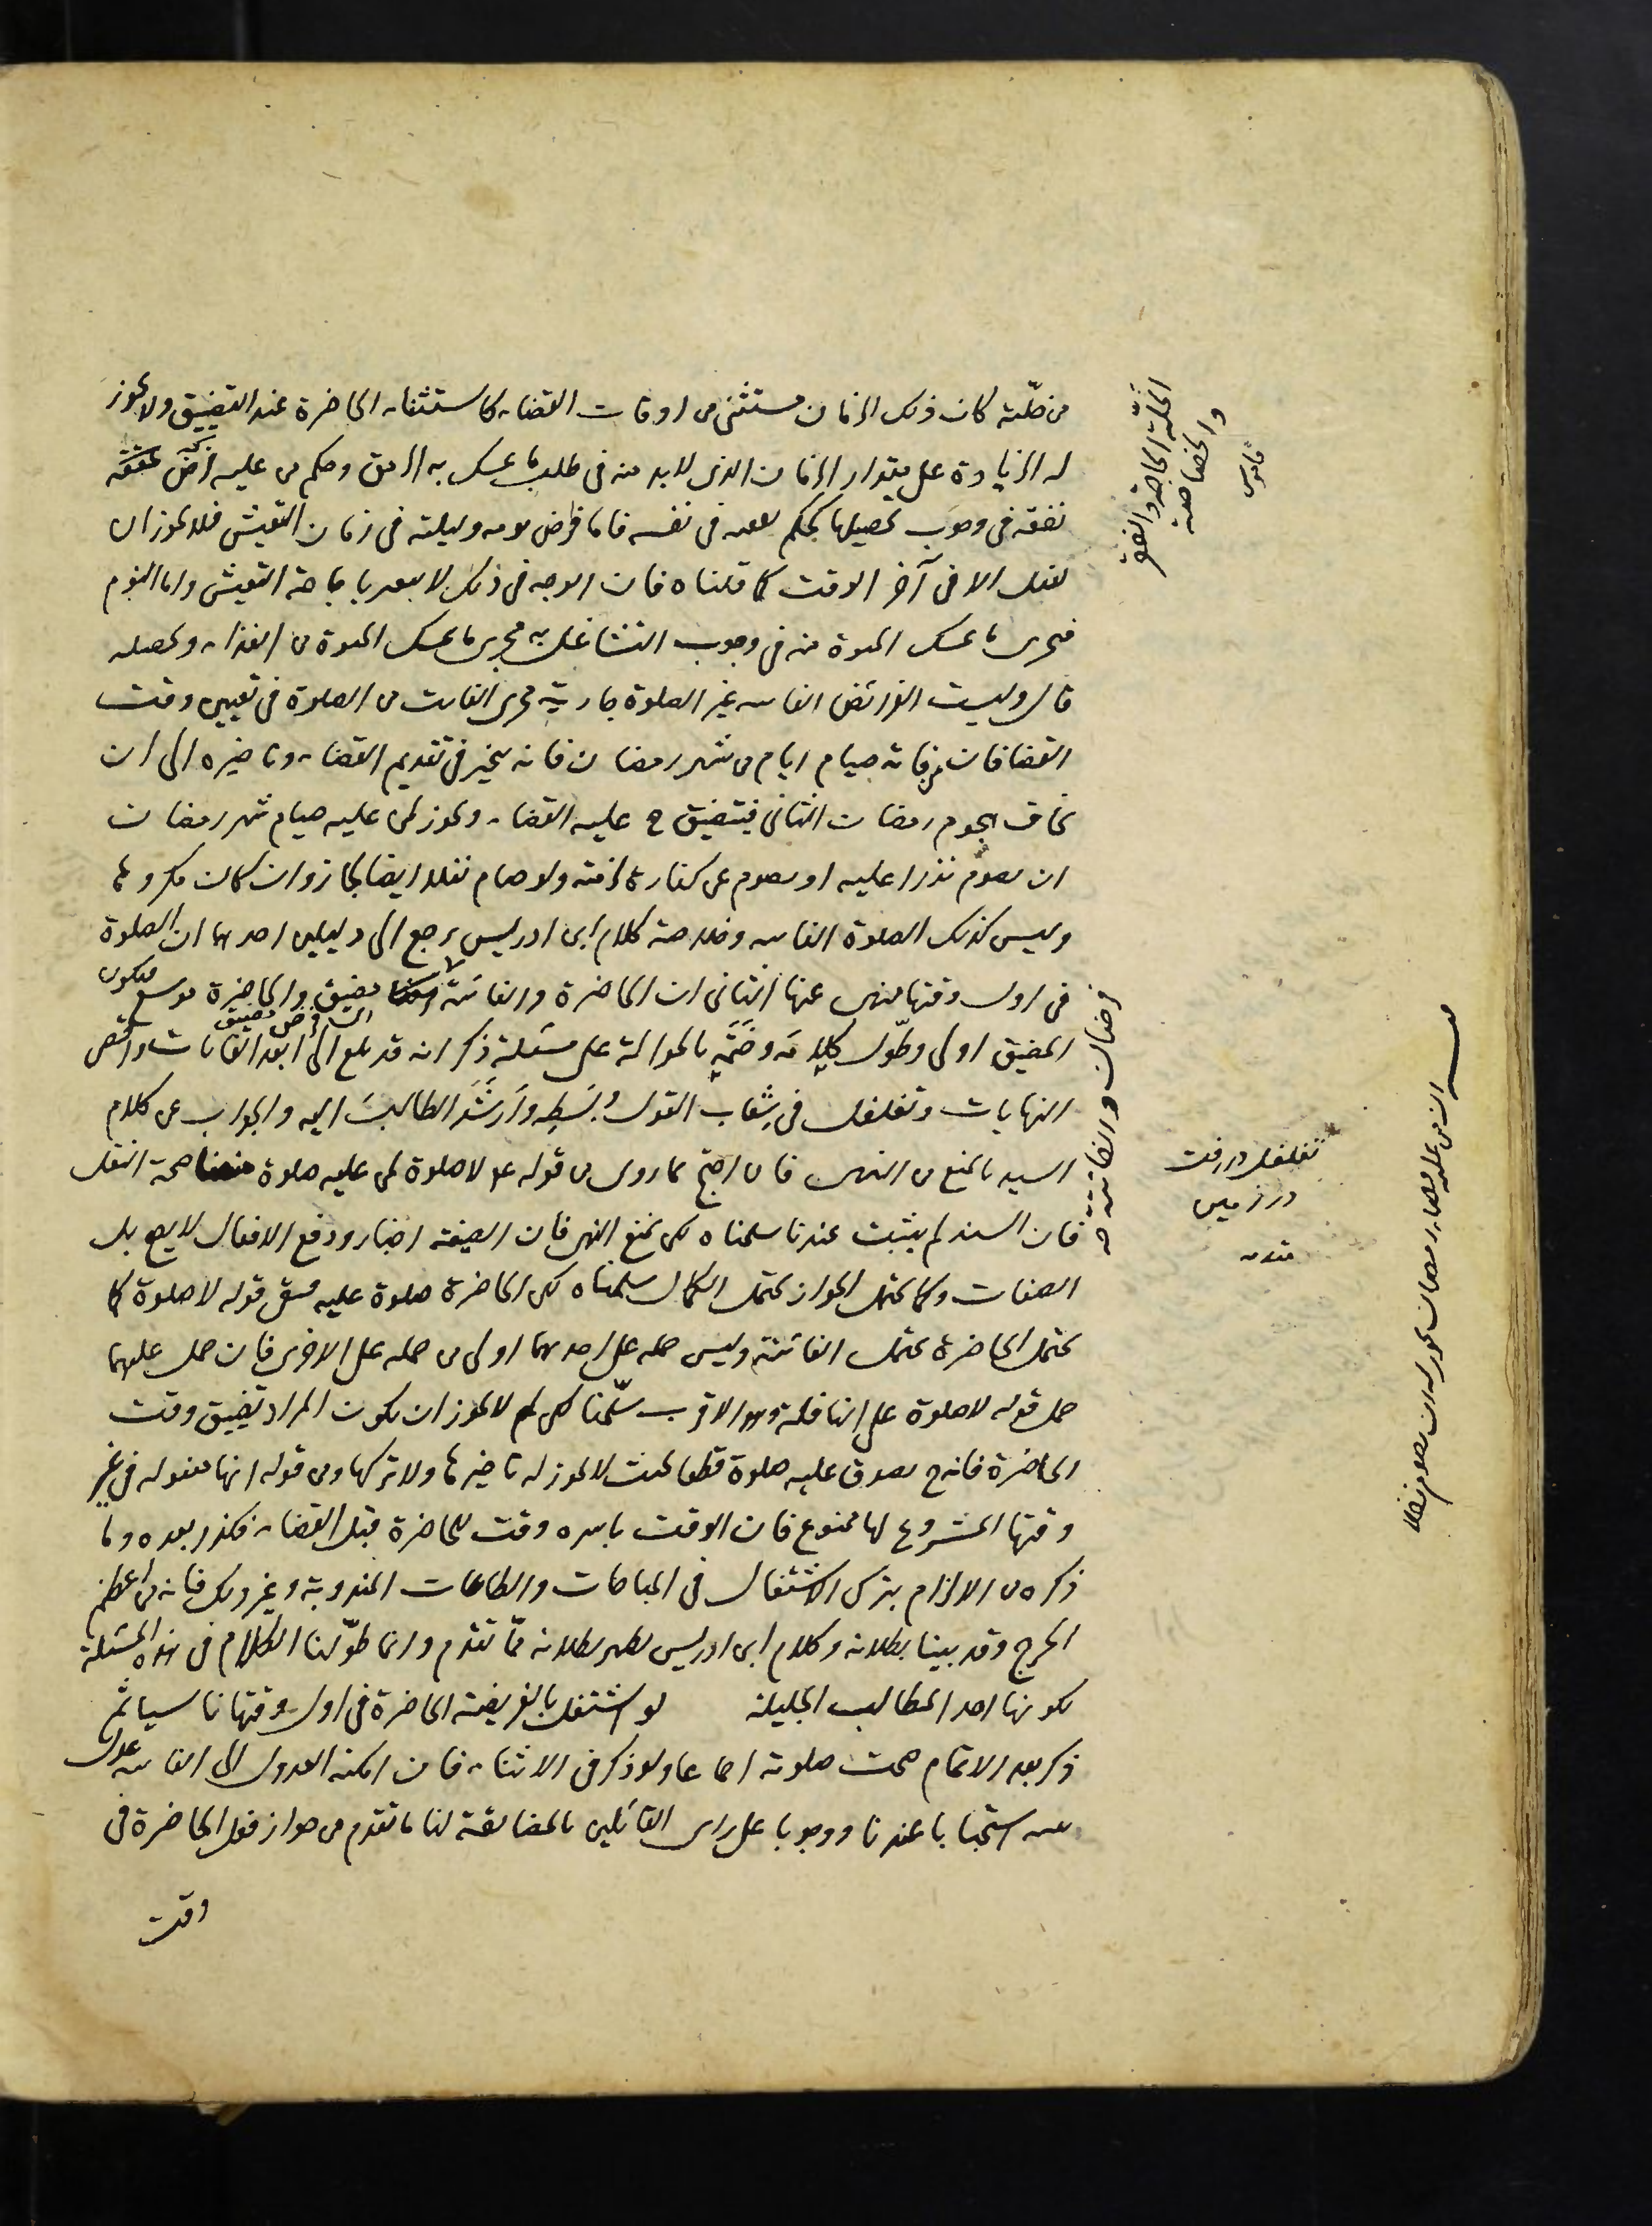 من خلّته كان ذلك الزمان مستثنى من اوقات القضاء كاستثناء الحاضرة عند التضييق ولا يجوز
له الزيادة على مقدار الزمان الذى لابد منه فى طلب ما يمسك به الرمق وحكم من عليه فرض
نفقه فى وجوب تحصيلها كحكم نفسه فاما فرض يومه وليلته فى زمان التعيش فلا يجوز ان
يفعل الا فى آخر الوقت كما قلناه فان الوجه فى ذلك لا يتغير باباحة التعيش واما النوم
فيجرى ما يمسك الحيوة منه فى وجوب التشاغل به مجرى ما يمسك الحيوة من الغذاء وتحصيله
قال وليست الفرائض الفايتة غير الصلوة جارية مجرى الفايت من الصلوة فى تعيين وقت
القضا فان من فاته صيام ايام من شهر رمضان فانه يخير فى تقديم القضاء وتاخيره الى ان
يخاف هجوم رمضان الثانى فيتضيق ح عليه القضاء ويجوز لمن عليه صيام شهر رمضان
ان يصوم نذرا عليه او يصوم عن كفارة لزمته ولو صام نفلا ايضا لجاز وان كان مكروها
وليس كذلك الصلوة الفايتة وخلاصة كلام ابن ادريس يرجع الى دليلين احدهما ان الصلوة
فى اول وقتها منهى عنها الثانى ان الحاضرة والفائتة مضيق والحاضرة موسع فيكون
المضيق اولى وطوّل كلامه وضمّه بالحوالة على مسئلة ذكر انه قد بلغ الى ابعد الغايات واقصى
النهايات وتغلغل فى شِعاب القول وبسطِه وأرشَدَ الطالبَ اليه والجواب عن كلام
السيد بالمنع من النهى فان احتج بما روى من قوله ع لا صلوة لمن عليه صلوة منعنا صحة النقل
فان السند لم يثبت عندنا سلمناه لكن نمنع النهى فان الصيغة اخبار ورفع الافعال لا يصح بل
الصفات وكما يحتمل الجواز يحتمل الكمال سلمناه لكن الحاضرة صلوة عليه فبقى قوله لا صلوة كما
يحتمل الحاضرة يحتمل الفائتة وليس حمله على احدهما اولى من حمله على الاخرى فان حمل عليهما
حمل قوله لا صلوة على النافلة وهو الاقرب سلّمنا لكن لم لا يجوز ان يكون المراد تضيق وقت
الحاضرة فانه ح يصدق عليه صلوة قطعا بحيث لا يجوز له تاخيرها ولا تركها ومن قوله انها مفعوله فى غير
وقتها المشروع لها ممنوع فان الوقت باسره وقت للحاضرة قبل القضاء فكذا بعده وما
ذكره من الالزام بترك الاشتغال فى المباحات والطاعات المندوبة وغير ذلك فانه من اعظم
الحرج وقد بينا بطلانه وكلام ابن ادريس يظهر بطلانه ممّا تقدم وانما طوّلنا الكلام فى هذه المسئلة
لكونها احد المطالب الجليلة لو اشتغل بالفريضة الحاضرة فى اول وقتها ناسيا ثم
ذكر بعد الاتمام صحت صلوته اجماعا ولو ذكر فى الاثناء فان امكنه العدول الى الفايتة عدل
بنيته استحبابا عندنا ووجوبا على راى القائلين بالمضايقة لنا ما تقدم من جواز فعل الحاضرة فى
وقت
الخلّة الحاجة والفقر
والخصاصة
قاموس
تغلغل در رفت
در زمين